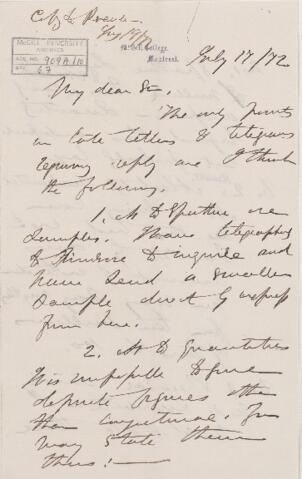 McGILL UNIVERSITY
ARCHIVES
ACC. NO. 909A/10
REF. 67
McGill College,
Montreal.
July 17/72
My dear Sir,
The only points
in late letters & telegrams
requiring reply are I think
the following.
1. As to Spathic ore
samples. I have telegraphed
to to inquire and
have send a smaller
sample direct by express
from here.
2. As to quantities
it is impossible to give
definite figures other
than conjectural. You
may state them
thus:—